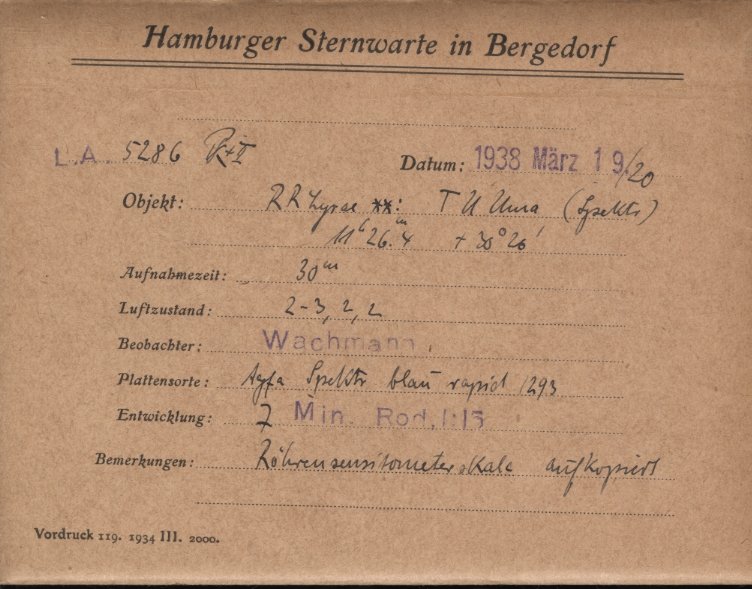 Hamburger Sternwarte in Bergedorf
L.A. 5286 P+I
Datum: 1938 März 19./20
Objekt: RR Lyrae **: TU Uma, (Spektr)
11ʰ26.ᵐ4 + 30°26'
Aufnahmezeit: 30ᵐ
Luftzustand: 2-3, 2, 2
Beobachter: Wachmann,
Plattensorte: Agfa Spektr. blau rapid 1293
Entwicklung: 7 Min. Rod. 1:15
Bemerkungen: Röhrensensitometerskala aufkopiert
Vordruck 119. 1934 III. 2000.